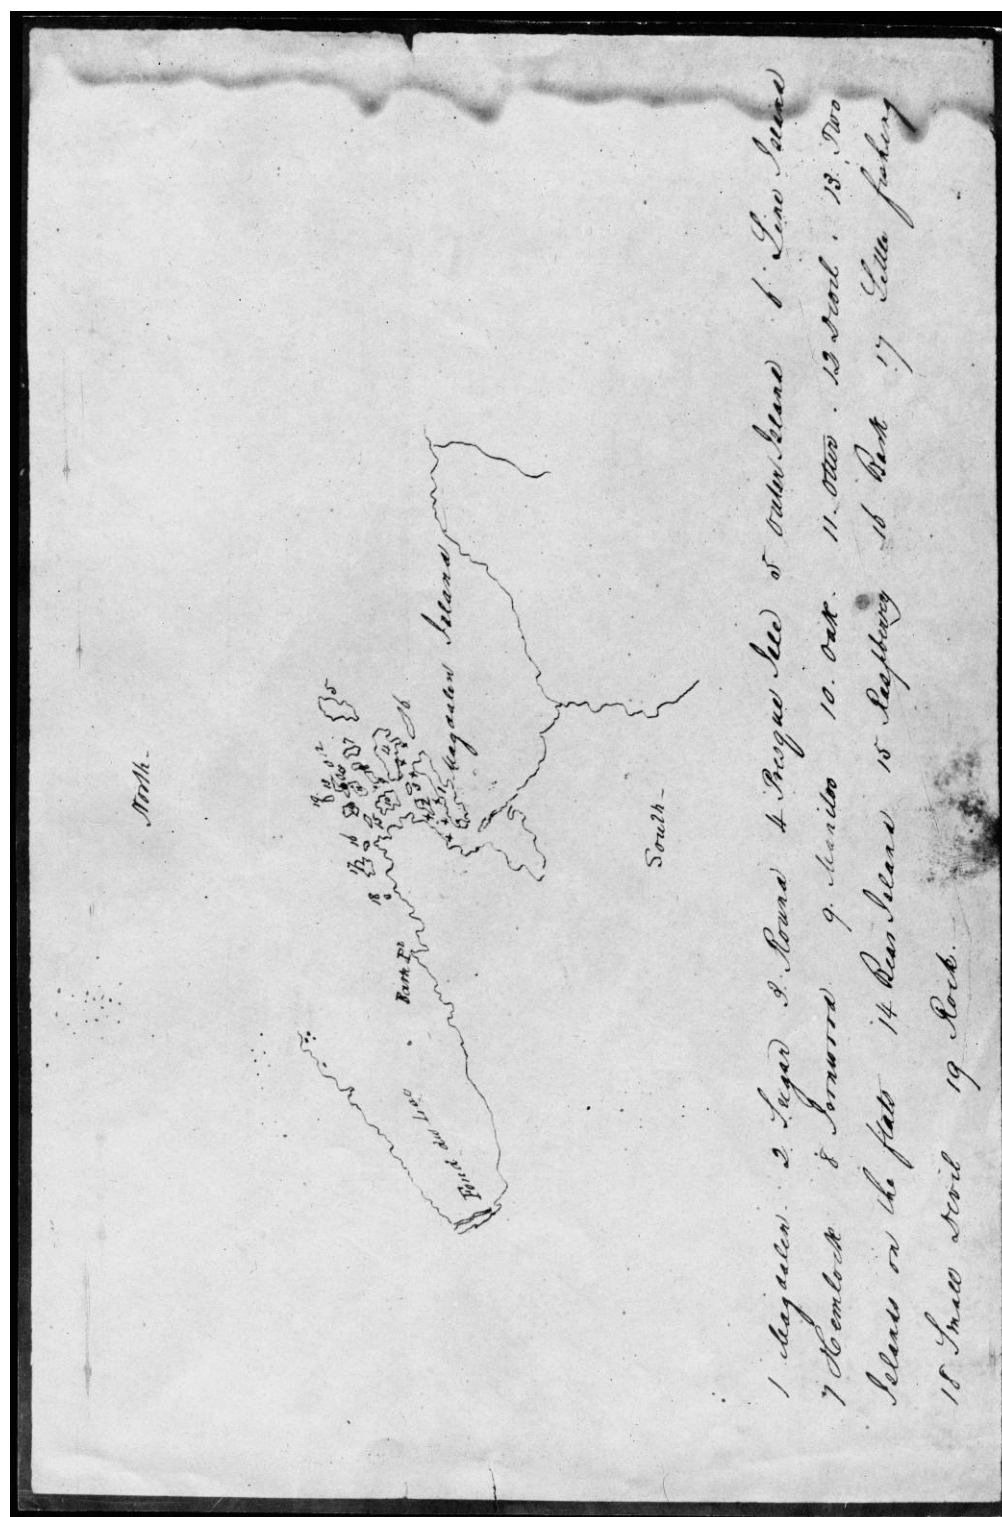 North-
5
16
18
Bark Pt
Fond du Lac
Magdalen Island
South-
1 Magdalen. 2 Sugar 3. Round 4 Presque Isle 5 Outer Island 6. Line Island
7 Hemlock 8 Ironwood 9. Manitoo 10. Oak. 11. Otter. 12 Devil. 13. Two
Islands on the flats 14 Bear Island 15 Raspberry 16 Bark 17 Little fishing
18 Small Devil 19 Rock.